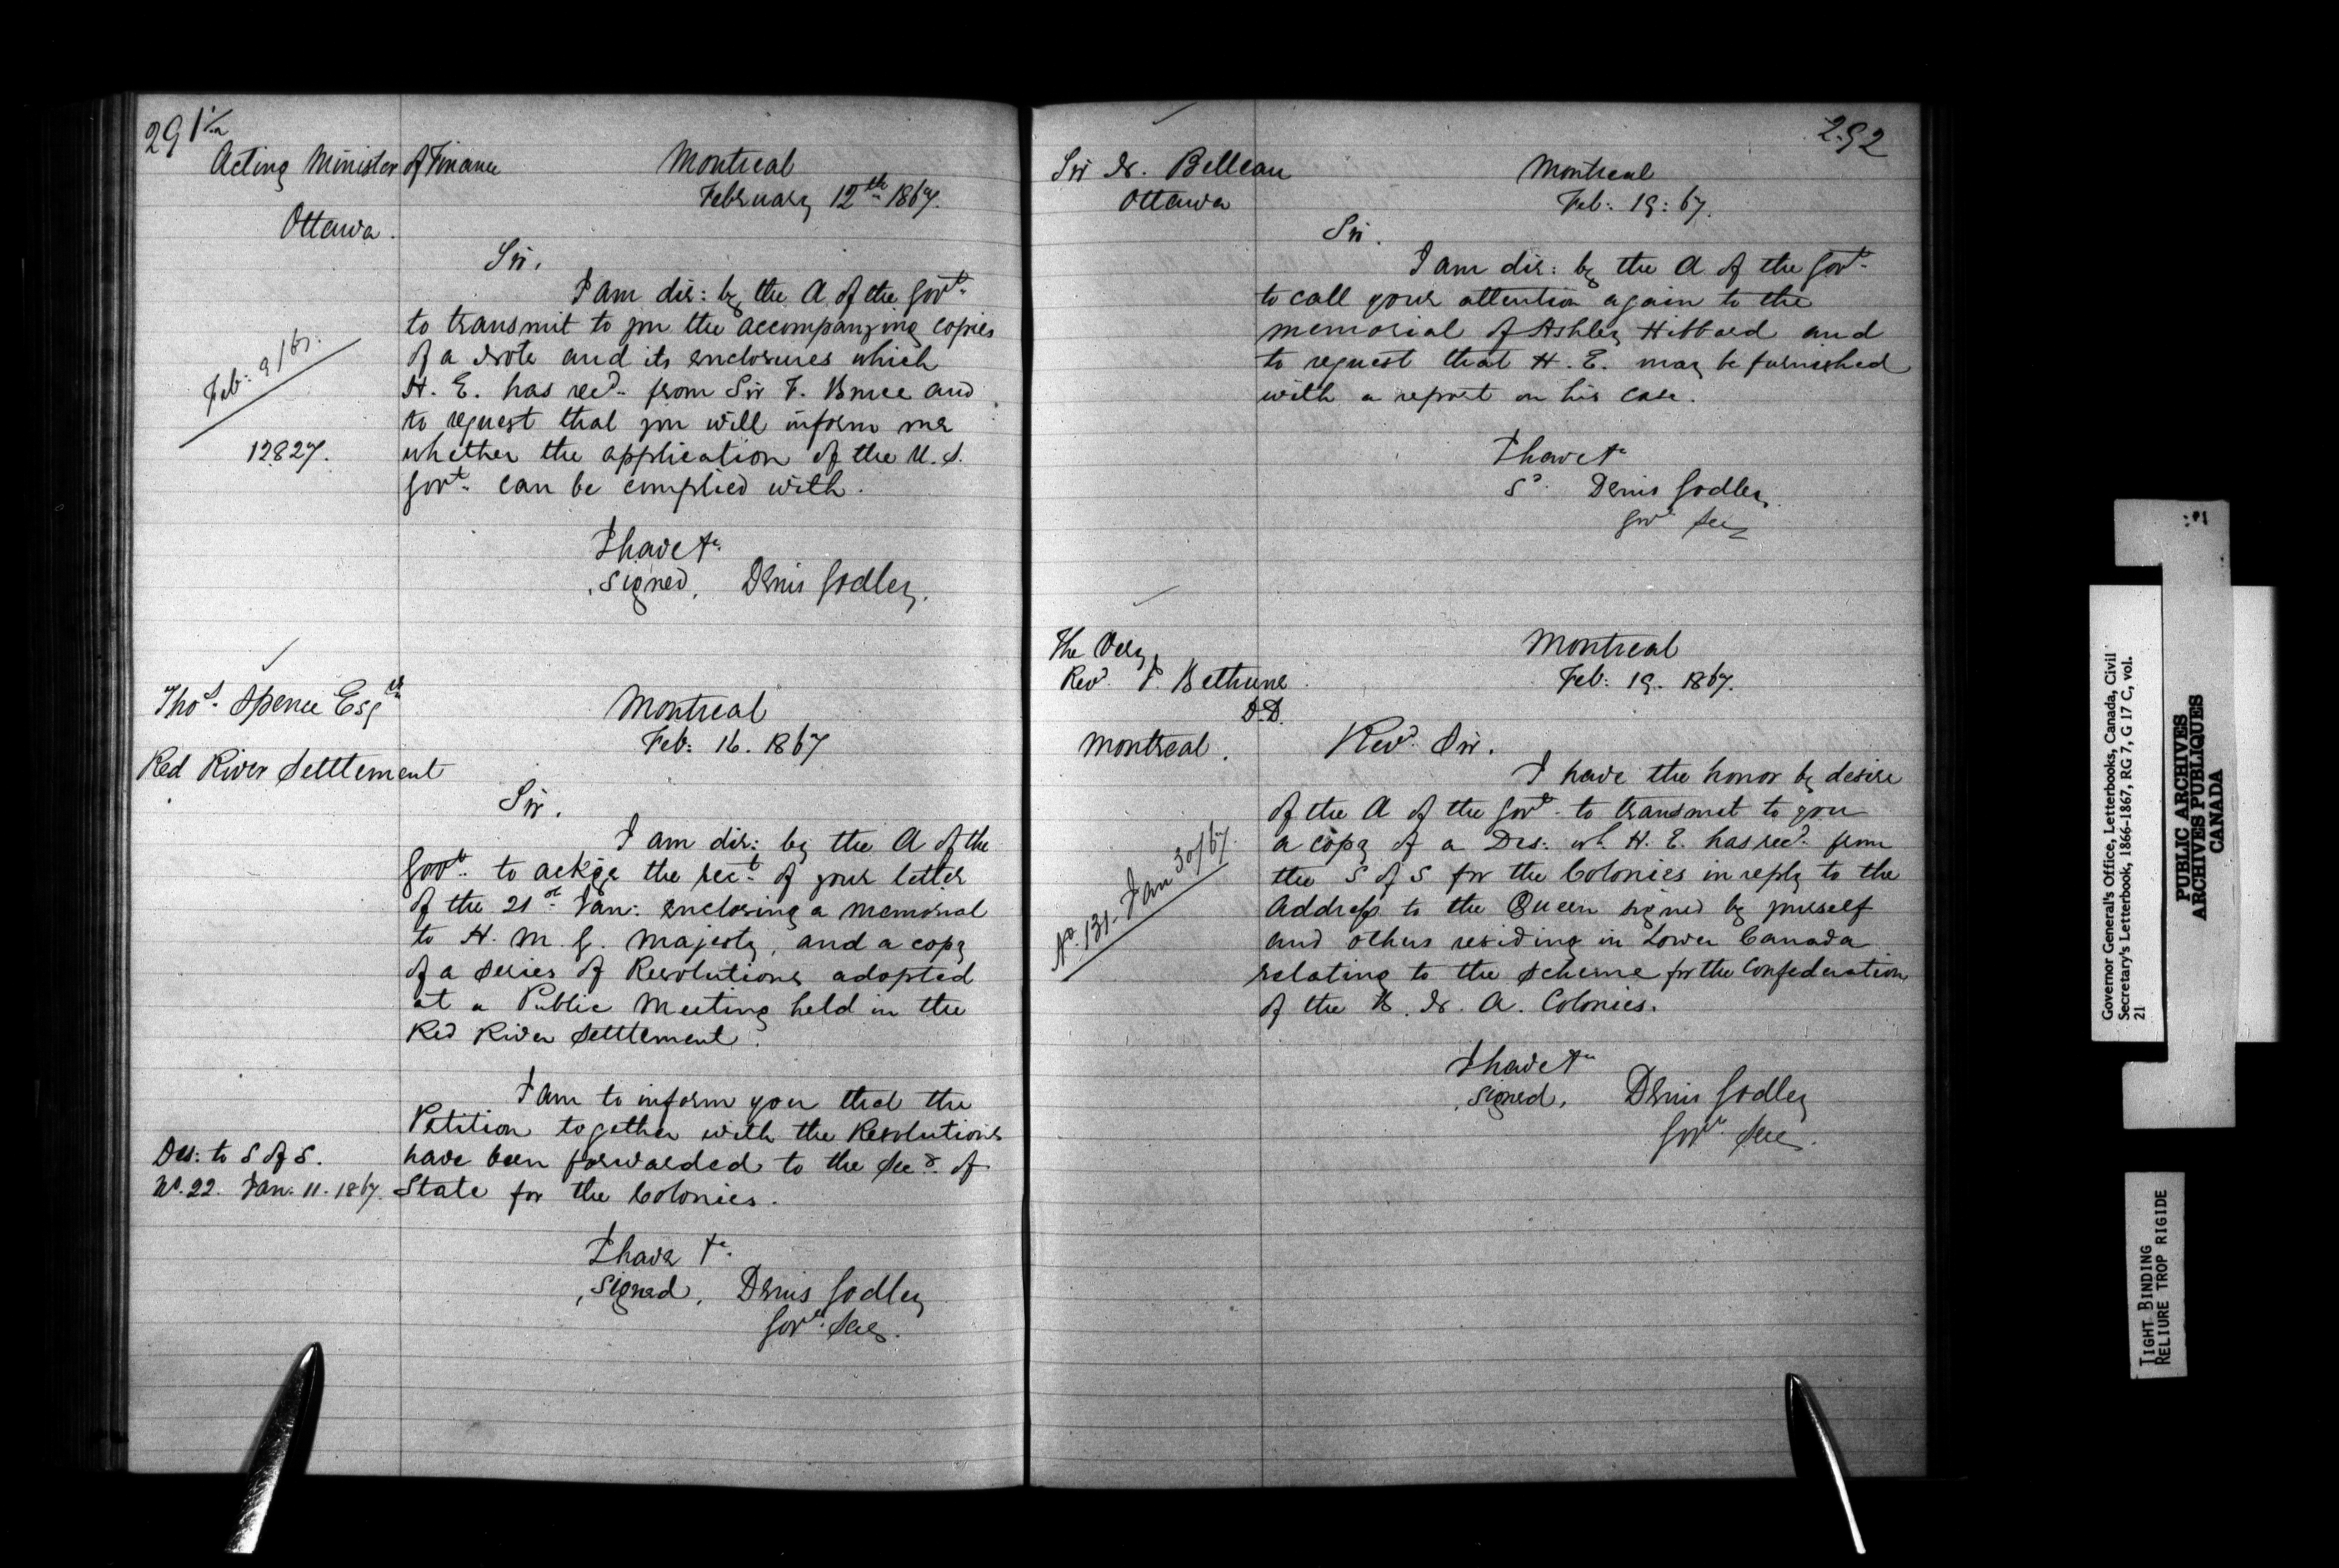 291
Acting Minister of Finance
Ottawa.
Montreal
February 12th 1867.
Sir,
I am dir: by the A. of the Govt.
to transmit to you the accompanying copies
of a Note and its enclosures which
H. E. has recd. from Sir F. Bruce and
to request that you will inform me
whether the application of the U. S.
Govt. can be complied with.
Feb: 9/67.
12827.
I have &c.
signed, Denis Godley.
Thos. Spence Esqre
Red River Settlement
Montreal
Feb: 16. 1867
Sir.
I am dir: by the A of the
Govt. to ackge the rect. of your letter
of the 21st Jan: enclosing a memorial
to H. M. G. Majesty, and a copy
of a Series of Resolutions adopted
at a Public Meeting held in the
Red River Settlement.
I am to inform you that the
Petition together with the Resolutions
have been forwarded to the Secy. of
State for the Colonies.
Des: to S of S.
No. 22. Jan. 11. 1867.
I have &c.
signed, Denis Godley
Govr. Secy.
292
Sir N. Belleau
Ottawa
Montreal
Feb: 19: 67.
Sir.
I am dir: by the A of the Govt.
to call your attention again to the
memorial of Ashley Hibbard and
to request that H. E. may be furnished
with a report on his case.
I have &c
Sd. Denis Godley
Govr Secy
The Very
Revd. J. Bethune
D.D.
Montreal.
Montreal
Feb: 19. 1867.
Revd. Sir.
I have the honor by desire
of the A of the Govt. to transmit to you
a copy of a Des: wh. H. E. has recd. from
the S of S for the Colonies in reply to the
Address to the Queen signed by yourself
and others residing in Lower Canada
relating to the Scheme for the Confederation
of the B. N. A. Colonies.
No. 131. Jan 30/67.
I have &c
signed, Denis Godley
Govr. Secy.
Governor General's Office, Letterbooks, Canada, Civil
Secretary's Letterbook, 1866-1867, RG 7, G 17 C, vol.
21
PUBLIC ARCHIVES
ARCHIVES PUBLIQUES
CANADA
TIGHT BINDING
RELIURE TROP RIGIDE